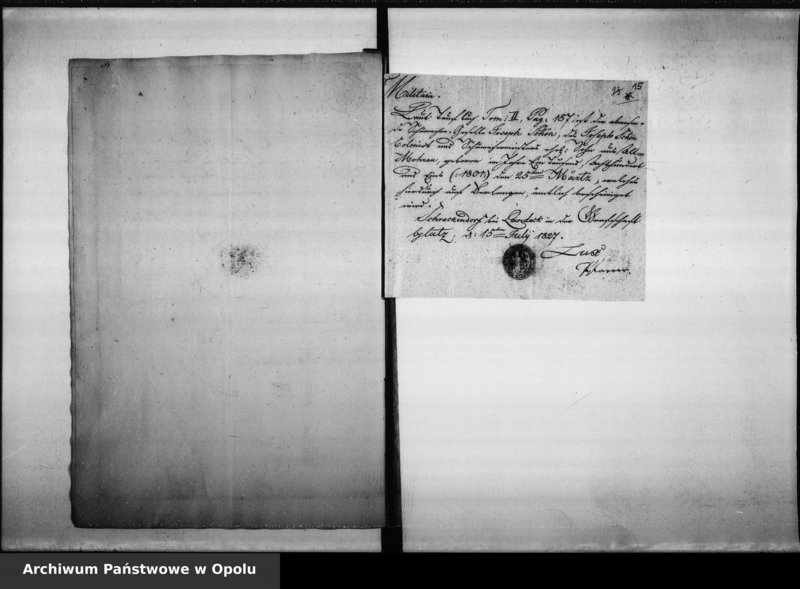 15
Militaria.
Laut Taufbuch Tom: II, Pag: 187, ist der
Schumacher-Geselle Joseph Schön, des Joseph Schön
Colonist und Schumachermeisters ehel: Sohn aus Alt-
Mohrau, geboren im Jahre Ein Tausend, Achthundert
und Eins (: 1801:) den 25ten Märtz, welches
hierdurch auf Verlangen, amtlich bescheiniget
wird.
Schreckendorf bei Landeck in der Grafschaft
Glatz, d: 15ten July 1827.
Pfarrer.
Archiwum Państwowe w Opolu